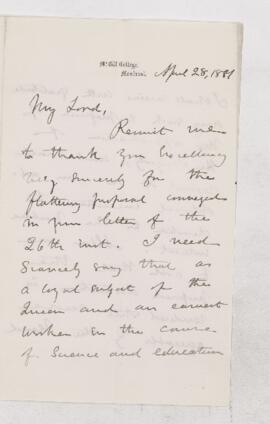 McGill College,
Montreal.
April 28, 1881
My Lord,
Permit me
to thank your Excellency
very sincerely for the
flattering proposal conveyed
in your letter of the
26th inst. I need
scarcely say that as
a loyal subject of the
Queen and an earnest
worker in the cause
of Science and education